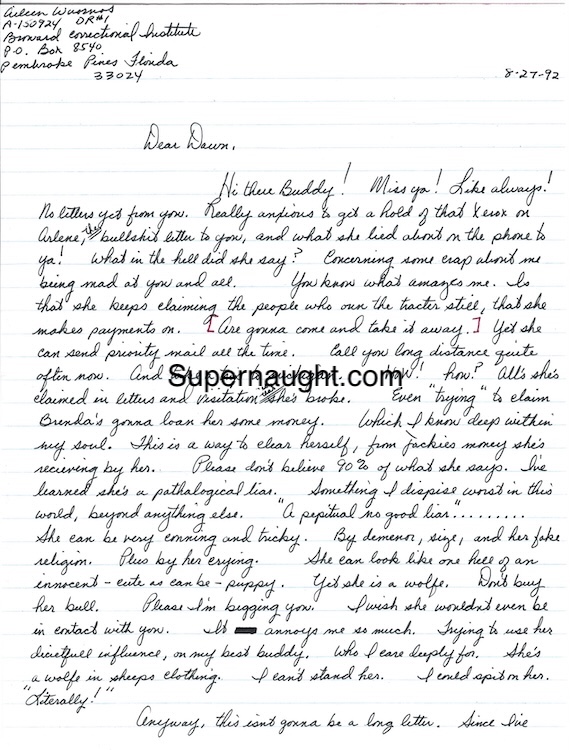 Aileen Wuornos
A-150924 DR#1
Broward Correctional Institute
P.O. Box 8540
Pembroke Pines Florida
33024
8-27-92
Dear Dawn,
Hi there Buddy! Miss ya! Like always!
No letters yet from you. Really anxious to get a hold of that Xerox on
Arlene, the bullshit letter to you, and what she lied about on the phone to
ya! What in the hell did she say? Concerning some crap about me
being mad at you and all. You know what amazes me. Is
that she keeps claiming the people who own the tracter still, that she
makes payments on. [Are gonna come and take it away.] Yet she
can send priority mail all the time. Call you long distance quite
often now. And How! How? All's she's
Supernaught.com
claimed in letters and visitation she's broke. Even "trying" to claim
Brenda's gonna loan her some money. Which I know deep within
my soul. This is a way to clear herself, from Jackies money she's
recieving by her. Please don't believe 90% of what she says. I've
learned she's a pathalogical liar. Something I dispise worst in this
world, beyond anything else. "A pepitual no good liar".........
She can be very conning and tricky. By demenor, size, and her fake
religion. Plus by her crying. She can look like one hell of an
innocent - cute as can be - puppy. Yet she is a wolfe. Don't buy
her bull. Please I'm begging you. I wish she wouldn't even be
in contact with you. It annoys me so much. Trying to use her
dicietfull influence, on my best buddy. Who I care deeply for. She's
a wolfe in sheeps clothing. I can't stand her. I could spit on her.
"Literally!"
Anyway, this isn't gonna be a long letter. Since I've